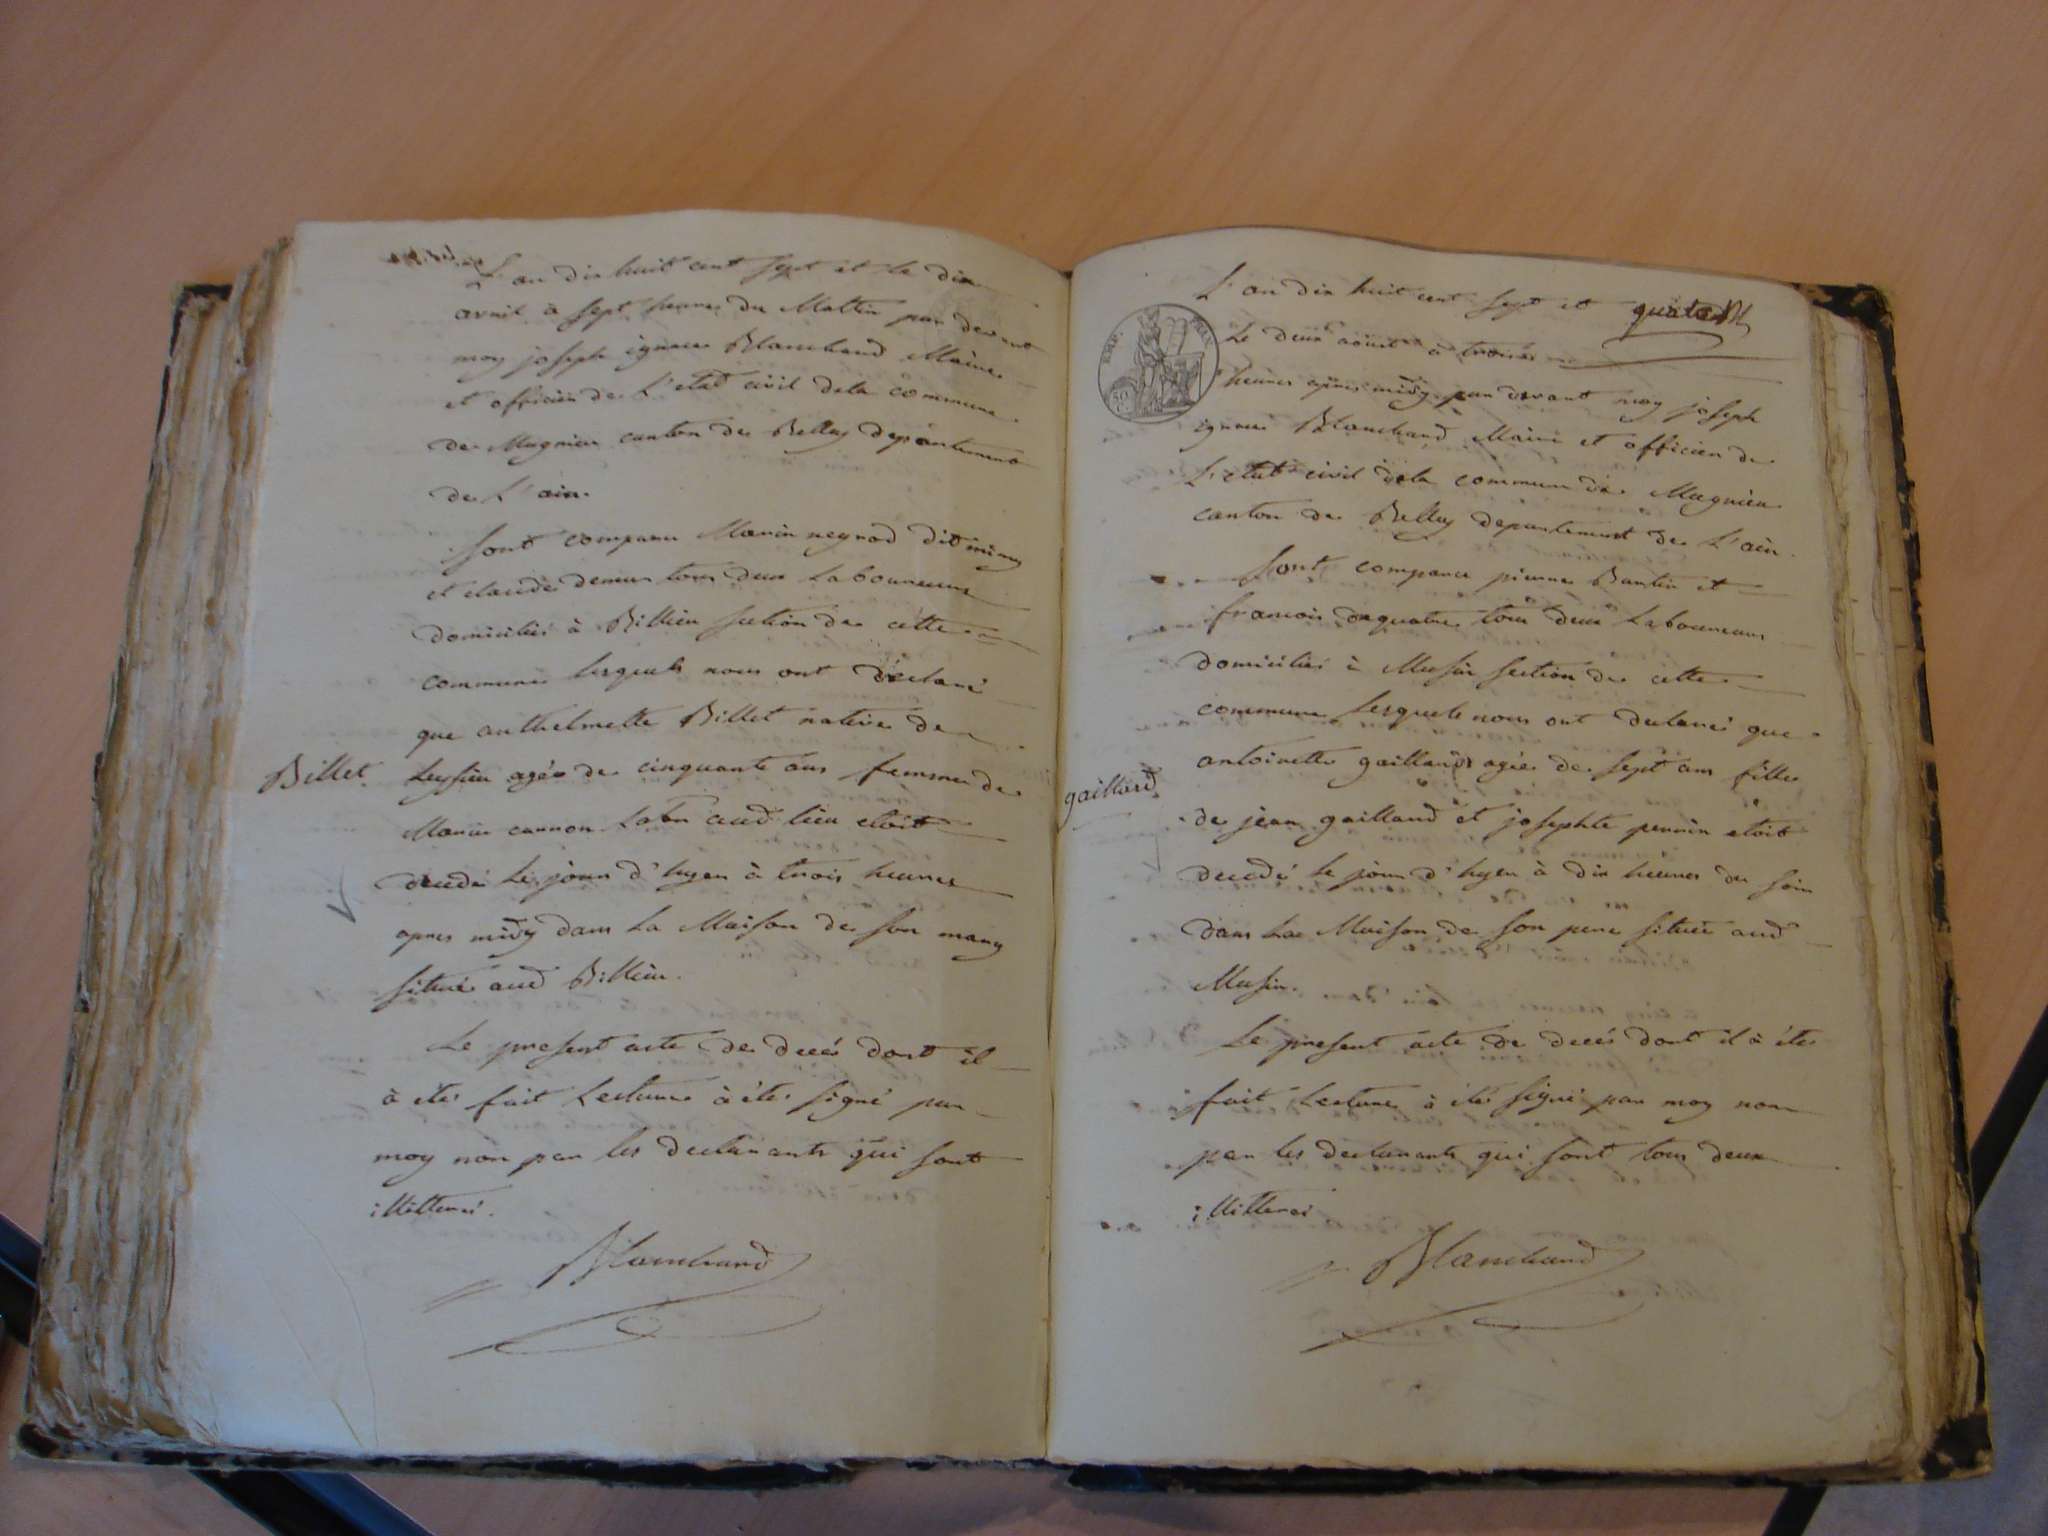 L'an dix huit cent sept et le dix
avril à sept heures du Mattin par devant
moy joseph ignace Blanchard Maire
et officier de L'etat civil dela commune
de Magnieu canton de Belley departement
de L'ain.
Sont comparu Marin neyrod dit miny
et claude demeur tous deux Laboureurs
domiciliés à Billieu section de cette
commune lesquels nous ont déclaré
que anthelmette Billet native de
Billet
Leyssieu agée de cinquante ans femme de
Marin cannon aud lieu etoit
decedé le jour d'hyer à trois heures
apres midy dans La Maison de son mary
situé aud Billieu.
Le present acte de decés dont il
à étés fait Lecture à étés signé par
moy non par les declarants qui sont
illitterés.
Blanchard
L'an dix huit cent sept et
Le deux aoust à trois
EMP. FRAN.
50 C.
heures apres midy par devant moy joseph
ignace Blanchard Maire et officier de
L'etat civil dela commune de Magnieu
canton de Belley departement de L'ain.
Sont comparu pierre Bantin et
francois dequatre tous deux Laboureurs
domiciliés à Musin section de cette
commune Lesquels nous ont declaré que
antoinette gaillard agée de sept ans fille
gaillard.
de jean gaillard et josephte perrin etoit
decedé le jour d'hyer à dix heures du soir
dans La Maison de son pere situé aud
Musin.
Le present acte de decés dont il à étés
fait Lecture à étés signé par moy non
par les declarants qui sont tous deux
illitterés
Blanchard